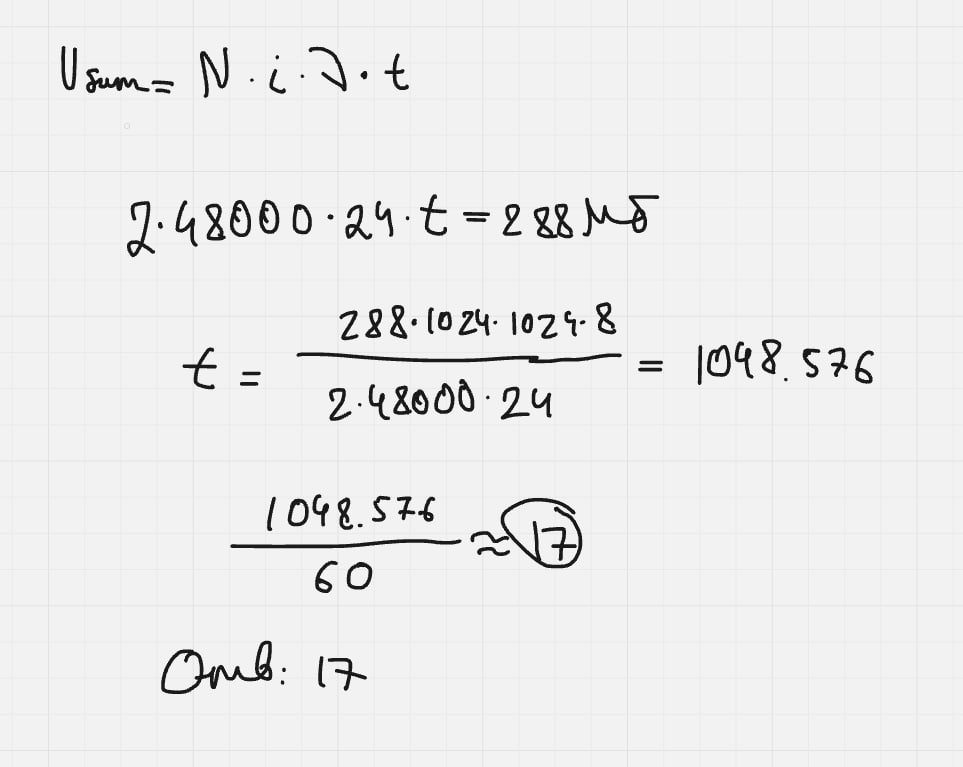 Usum = N · i · λ · t
2·48000·24·t = 288 Мб
t = 288·1024·1024·8 / 2·48000·24 = 1048.576
1048.576 / 60 ≈ 17
Отв: 17